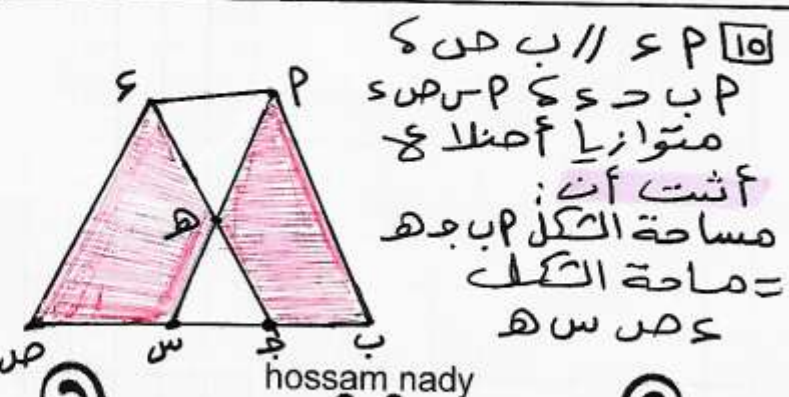 ١٥ أ ء // ب ص ،
أ ب ج ء ، أ س ص ء
متوازيا أضلاع
أثبت أن :
مساحة الشكل أ ب جـ هـ
= مساحة الشكل
ء ص س هـ
ء
أ
هـ
ص
س
جـ
ب
hossam nady